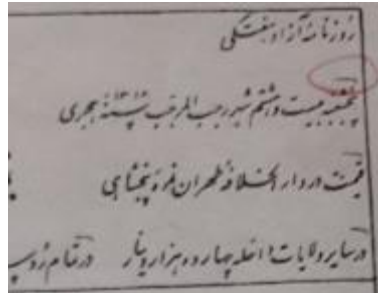 روزنامهٔ آزاد هفتگی
پنجشنبه بیست و هشتم شهر رجب المرجب سنهٔ ۱۳۱۲ هجری
قیمت در دار الخلافهٔ طهران نمرهٔ پنجشاهی
در سایر ولایات داخله چهارده هزار دینار در تمام روسیه